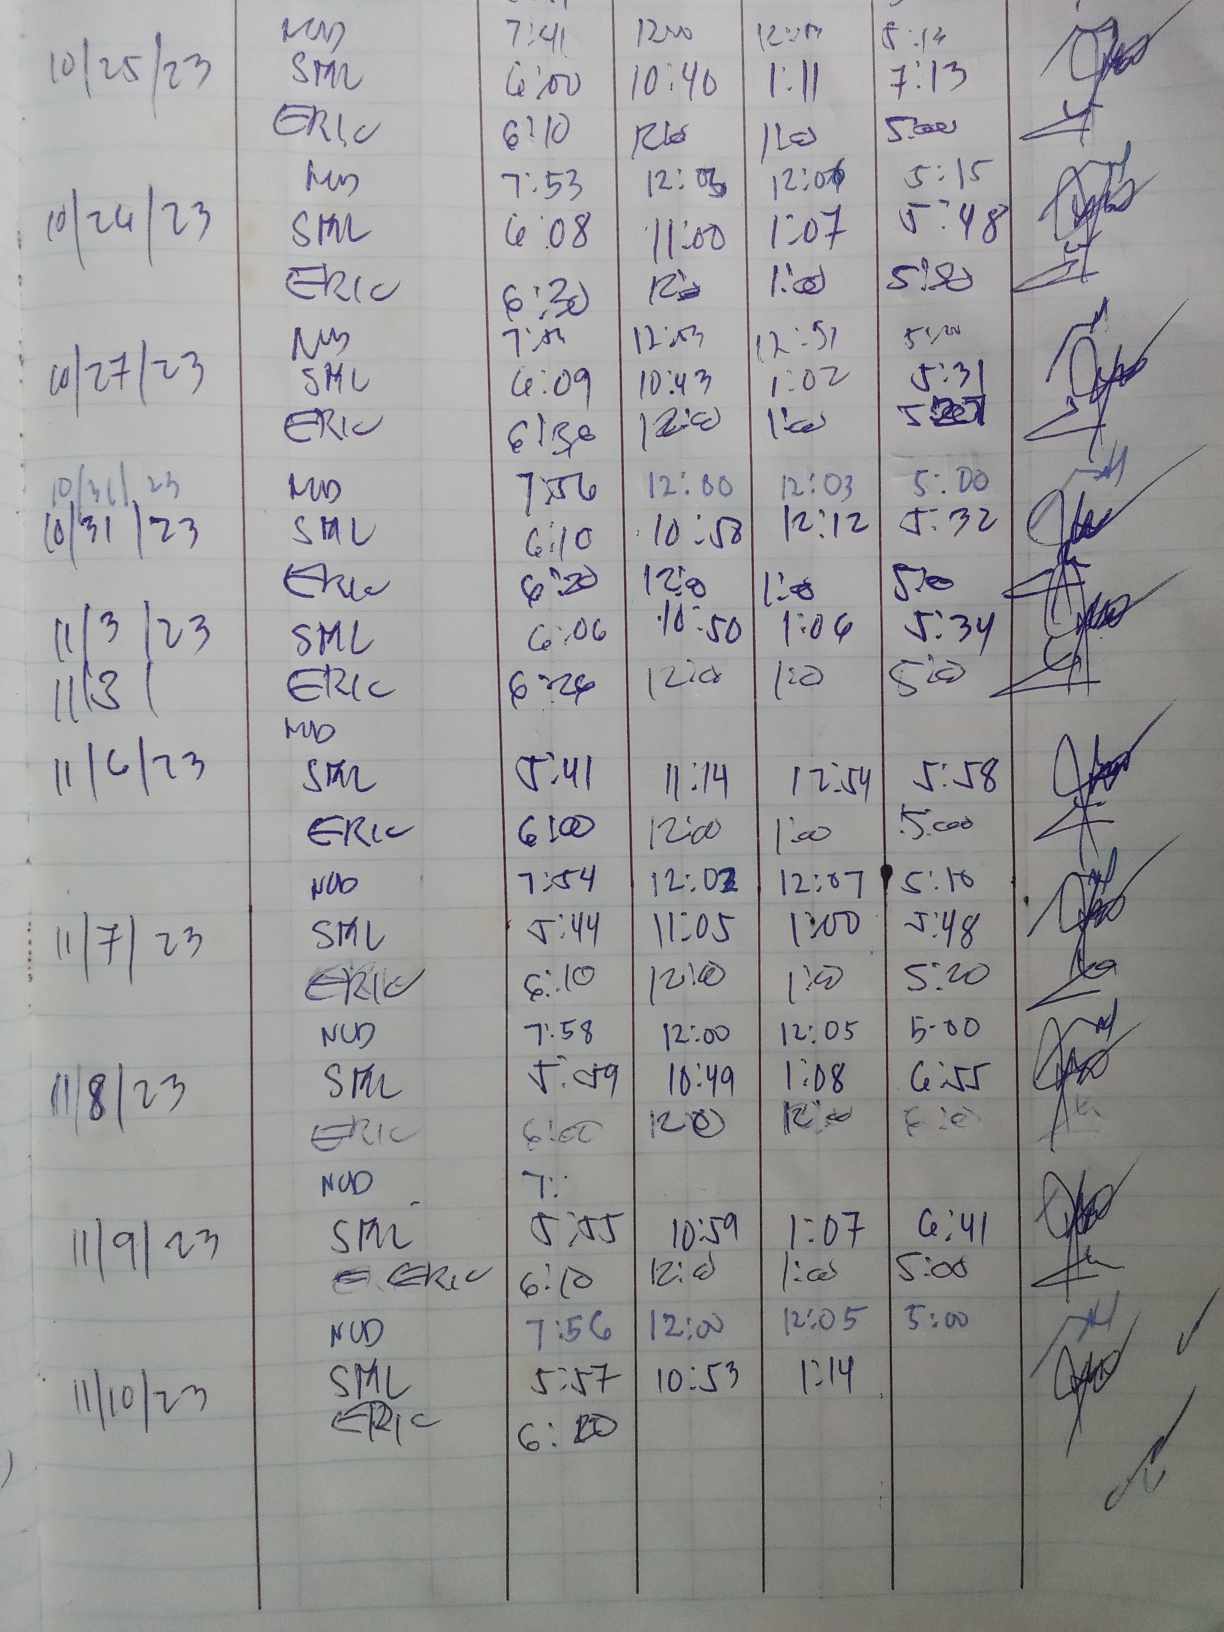 NUD 7:41 12:00
10/25/23 SML 6:00 10:40 1:11 7:13
ERIC 6:10 1:00 5:00
NUD 7:53 12:03 5:15
10/26/23 SML 6:08 11:00 1:07 5:48
ERIC 6:30 1:00
NUD 12:53 12:51
10/27/23 SML 6:09 10:43 1:02 5:31
ERIC 6:30 12:00 1:00
10/31/23 NUD 7:56 12:00 12:03 5:00
10/31/23 SML 6:10 10:58 12:12 5:32
ERIC 6:20 12:0 1:00 5:0
11/3/23 SML 6:06 10:50 1:06 5:34
11/3/ ERIC 6:26 12:0 1:0 5:0
NUD
11/6/23 SML 5:41 11:14 12:54 5:58
ERIC 6:00 12:00 1:00 5:00
NUD 7:54 12:02 12:07 5:10
11/7/23 SML 5:44 11:05 1:00 5:48
ERIC 6:10 12:0 1:0 5:20
NUD 7:58 12:00 12:05 5:00
11/8/23 SML 5:59 10:49 1:08 6:55
ERIC 6:00 12:0
NUD 7:
11/9/23 SML 5:55 10:59 1:07 6:41
ERIC 6:10 12:0 1:00 5:00
NUD 7:56 12:00 12:05 5:00
11/10/23 SML 5:57 10:53 1:14
ERIC 6:20